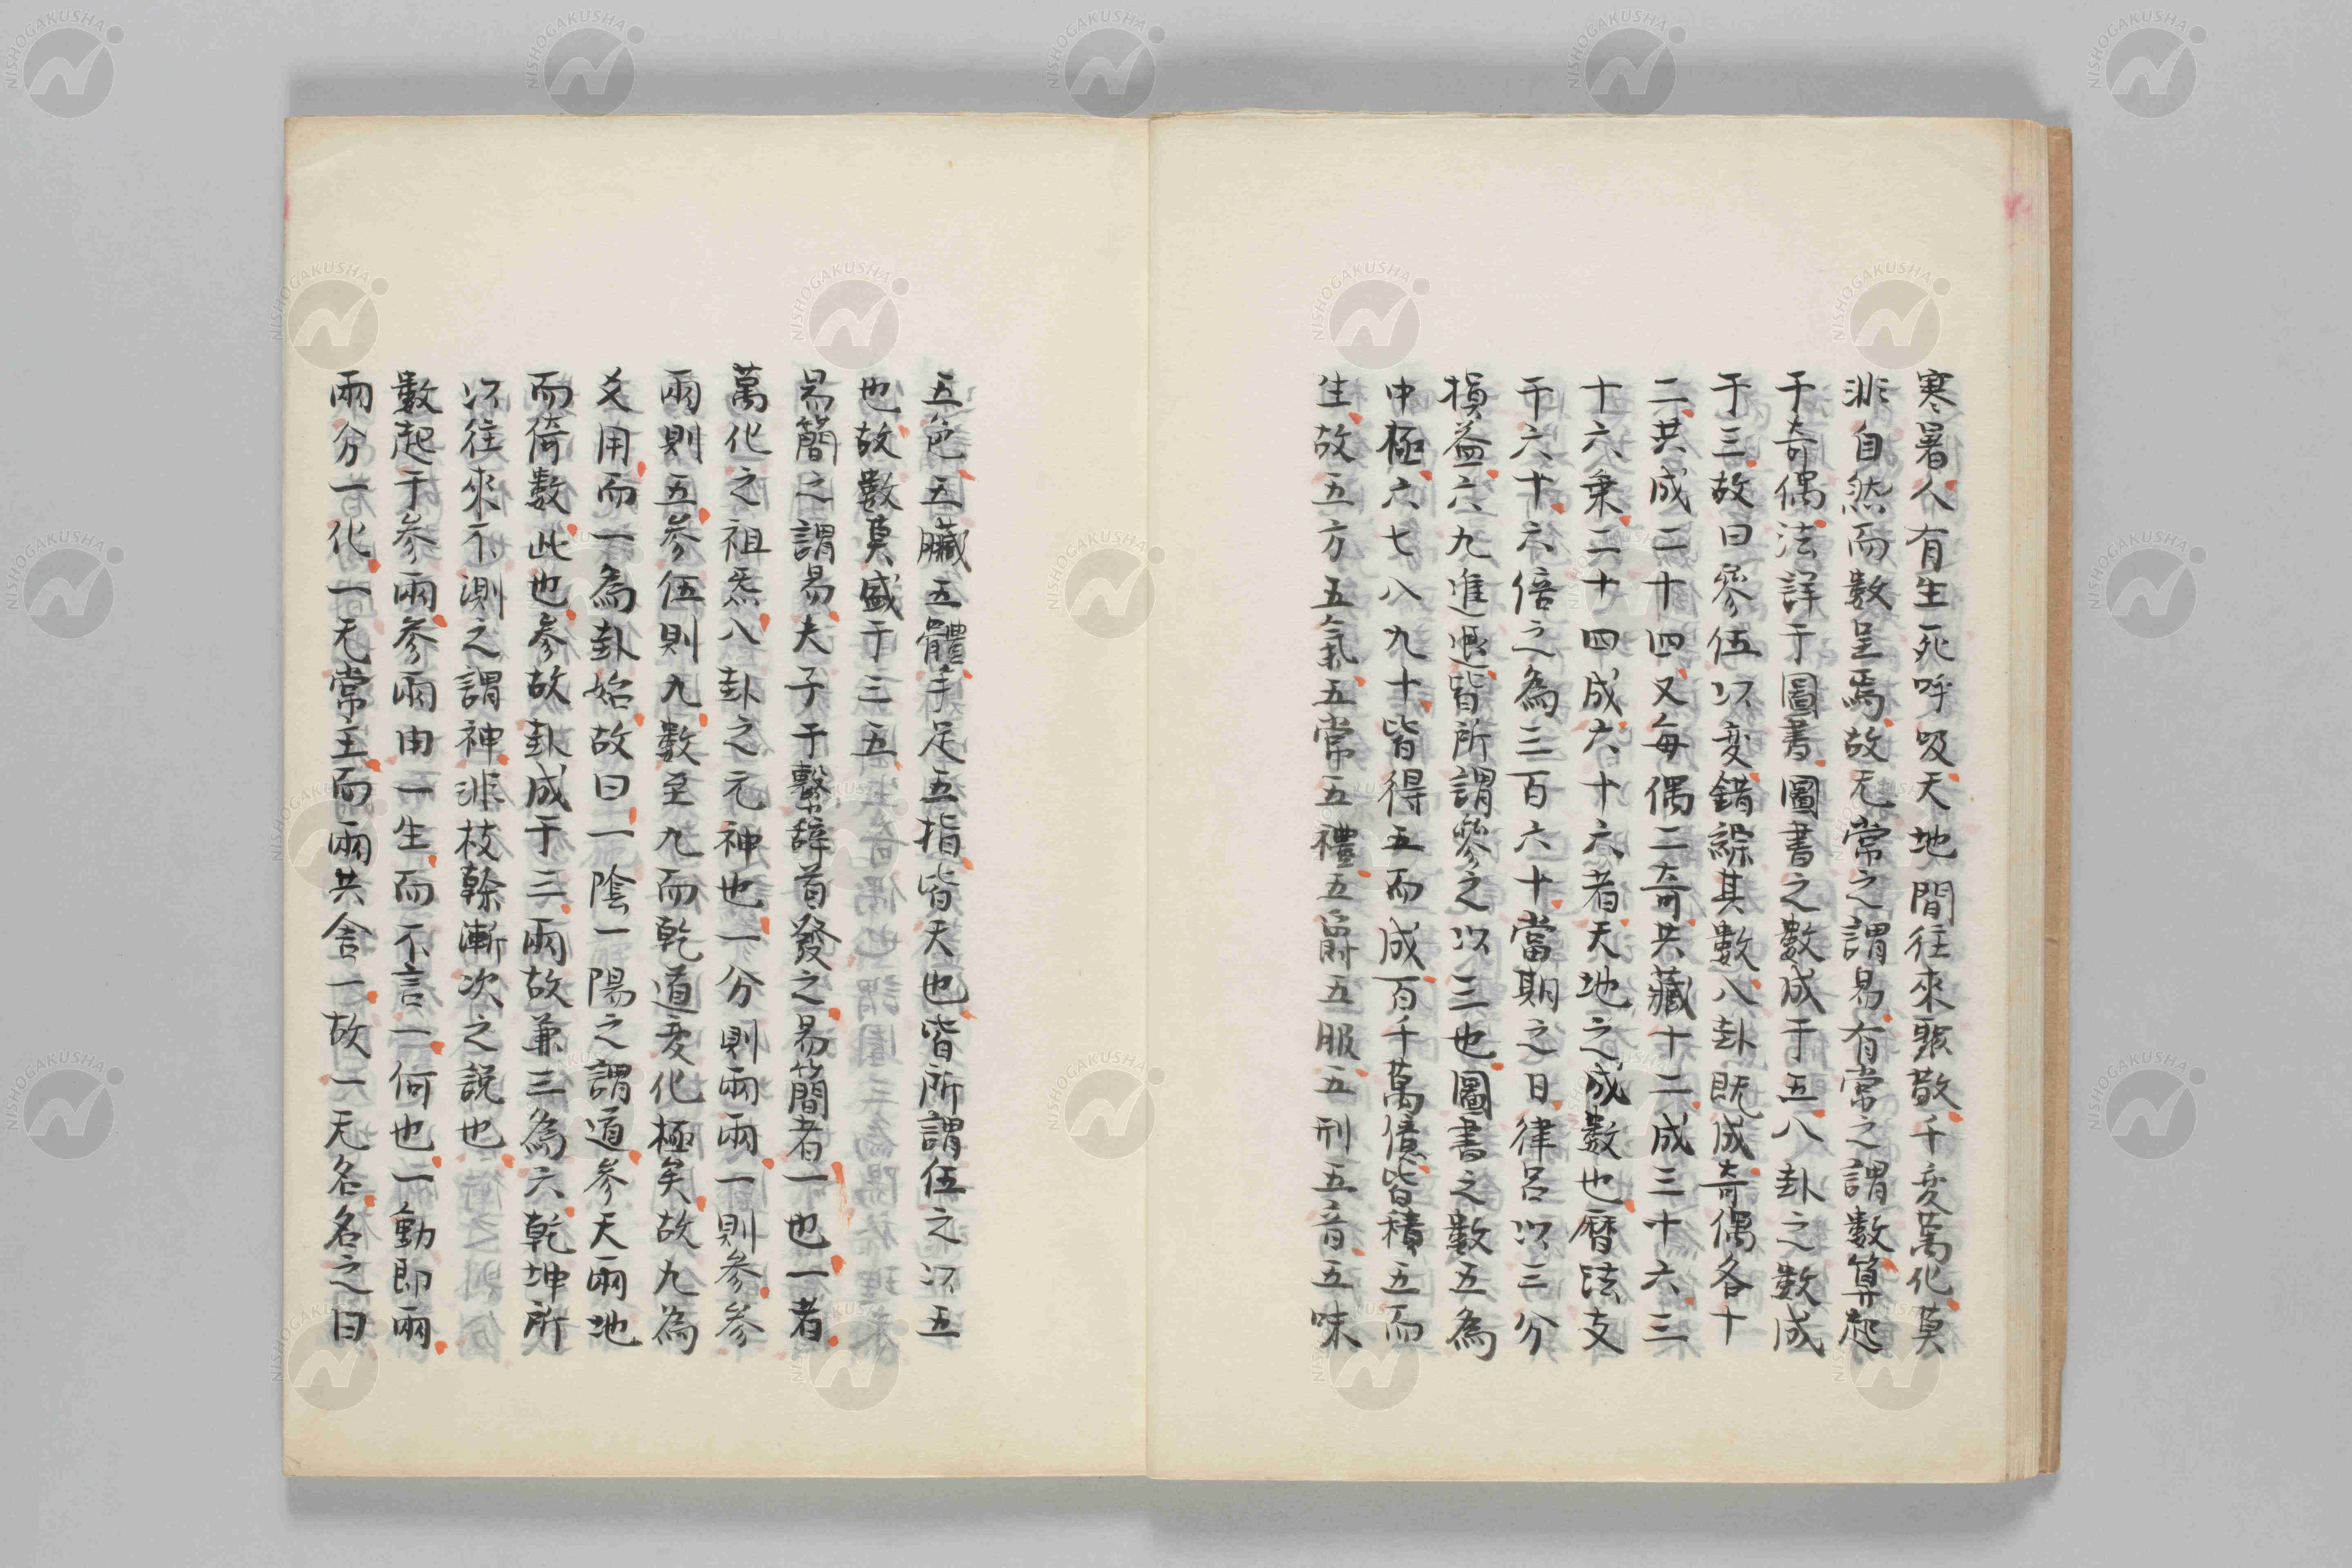 寒暑人有生死呼吸天地間往來聚散千変萬化莫
非自然而數呈焉故无常之謂易有常之謂數算起
于奇偶法詳于圖書圖書之數成于五八卦之數成
于三故曰參伍以変錯綜其數八卦既成奇偶各十
二共成二十四又每偶二奇共藏十二成三十六三
十六乗二十四成六十六者天地之成數也暦法支
干六十六倍之為三百六十當期之日律呂以三分
損益六九進退皆所謂參之以三也圖書之數五為
中極六七八九十皆得五而成百千萬億皆積五而
生故五方五氣五常五禮五爵五服五刑五音五味
五色五臟五體手足五指皆天也皆所謂伍之以五
也故數莫盛于三五
易簡之謂易夫子于繫辞首發之易簡者一也一者
萬化之祖炁八卦之元神也一分則兩兩一則參參
兩則五參伍則九數至九而乾道変化極矣故九為
爻用而一為卦始故曰一陰一陽之謂道參天兩地
而倚數此也參故卦成于三兩故兼三為六乾坤所
以往來不測之謂神非枝幹漸次之説也
數起于參兩參兩由一生而不言一何也一動即兩
兩分一化一无常主而兩共舍一故一无名名之曰
NISHOGAKUSHA